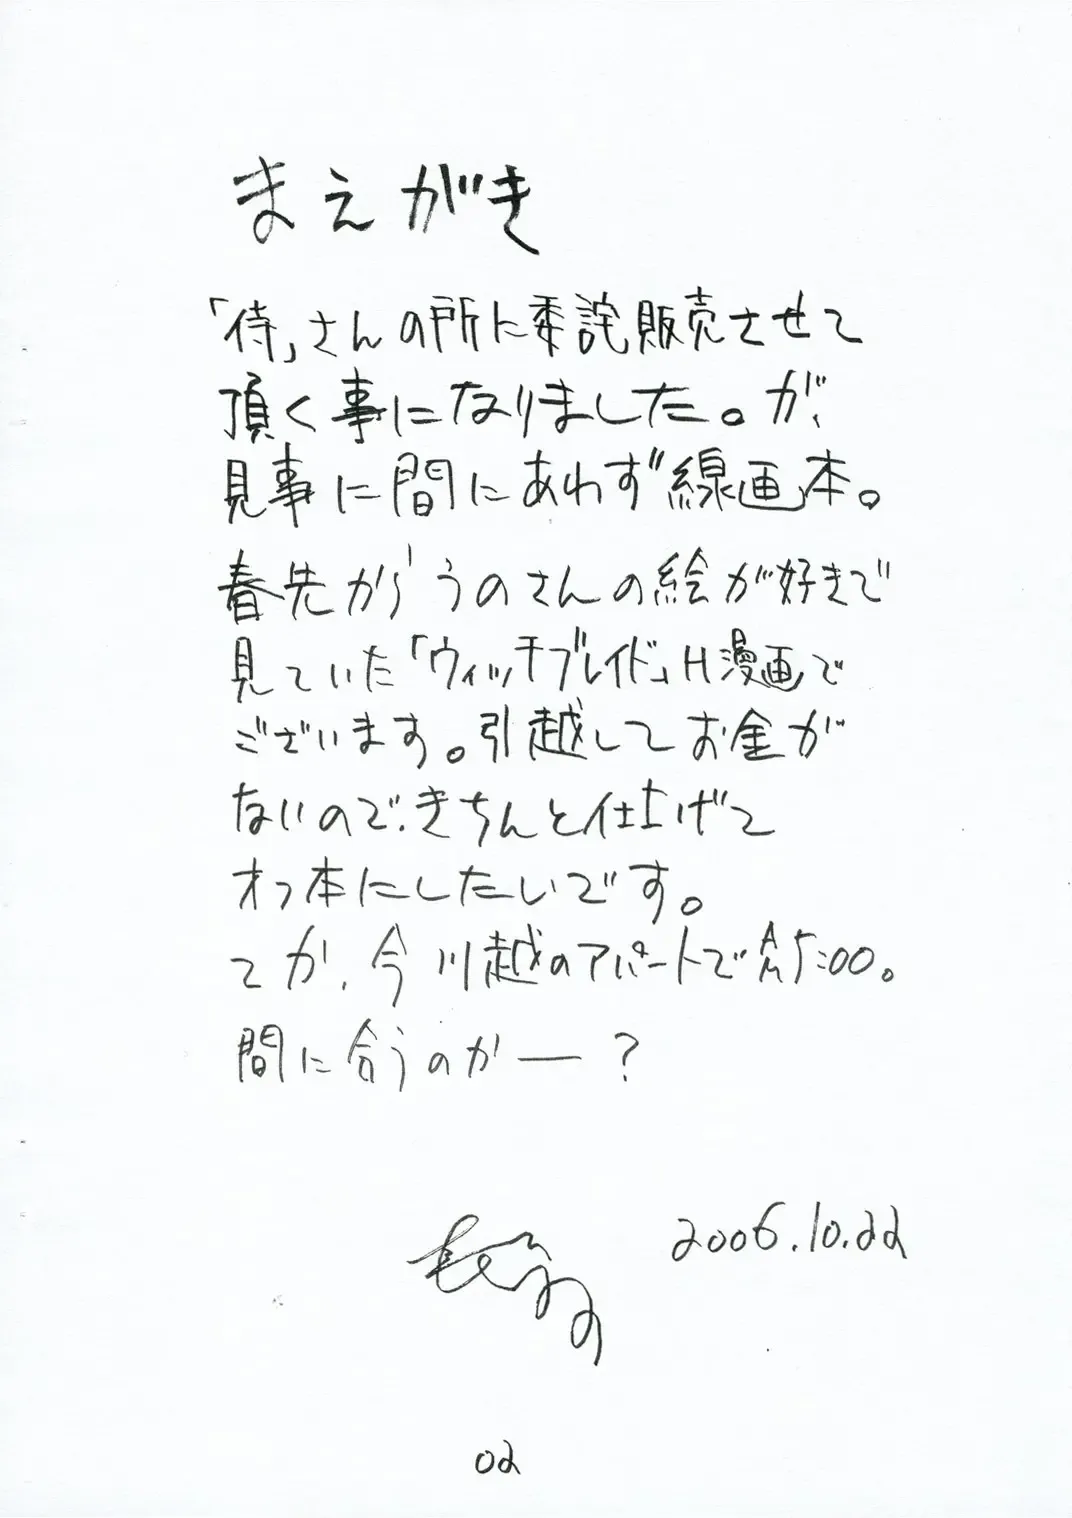 まえがき
「侍」さんの所に委託販売させて
頂く事になりました。が、
見事に間にあわず線画本。
春先から うのさんの絵が好きで
見ていた「ウィッチブレイド」H漫画で
ございます。引越してお金が
ないので、きちんと仕上げて
オフ本にしたいです。
てか、今 川越のアパートでAM5:00。
間に合うのかー?
2006.10.22
02